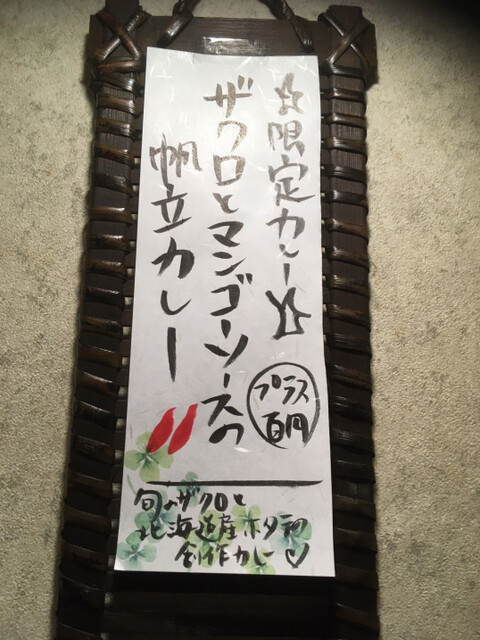 ☆限定カレー☆
プラス
百円
ザクロとマンゴーソースの
帆立カレー
旬のザクロと
北海道産ホタテの
創作カレー♡